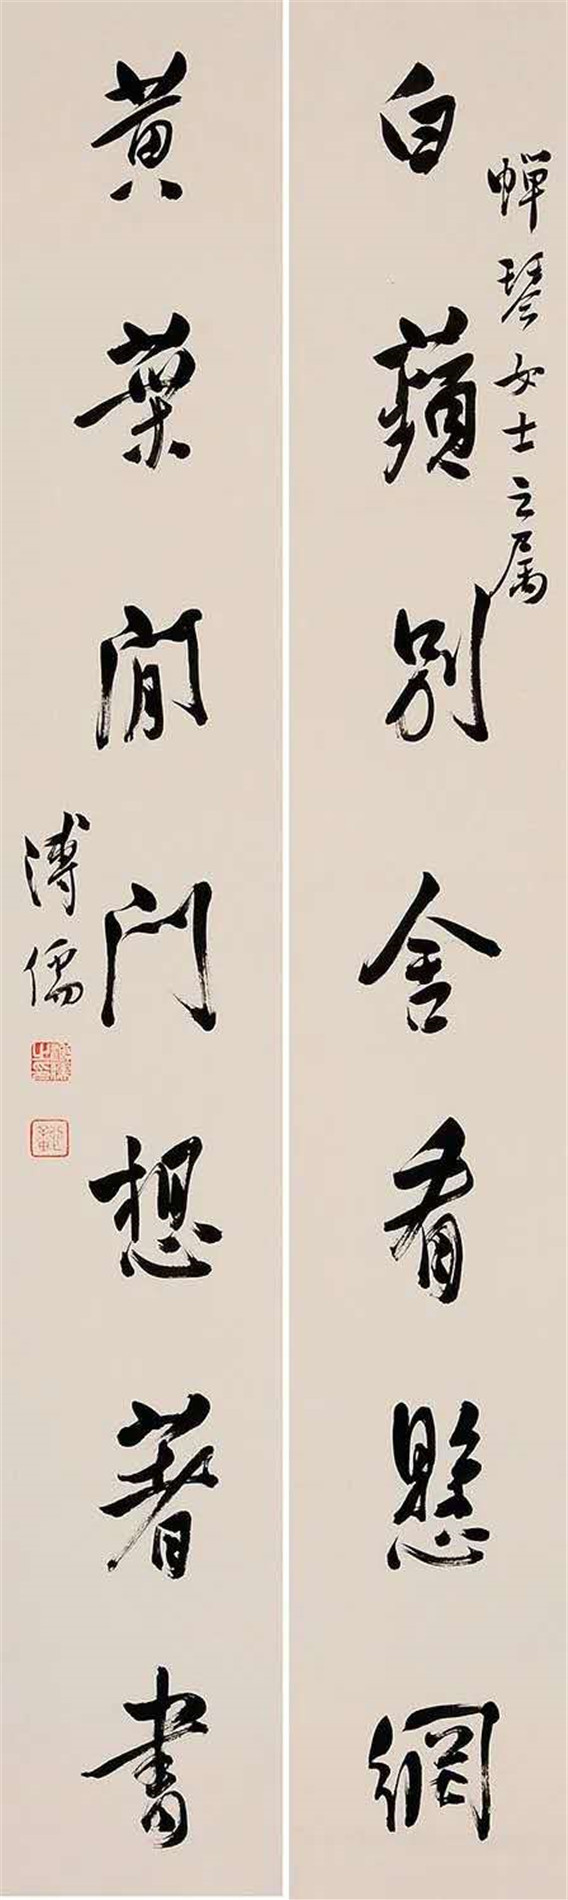 蟬琴女士之属
白蘋別舍看懸網
黃葉閒門想著書
溥儒